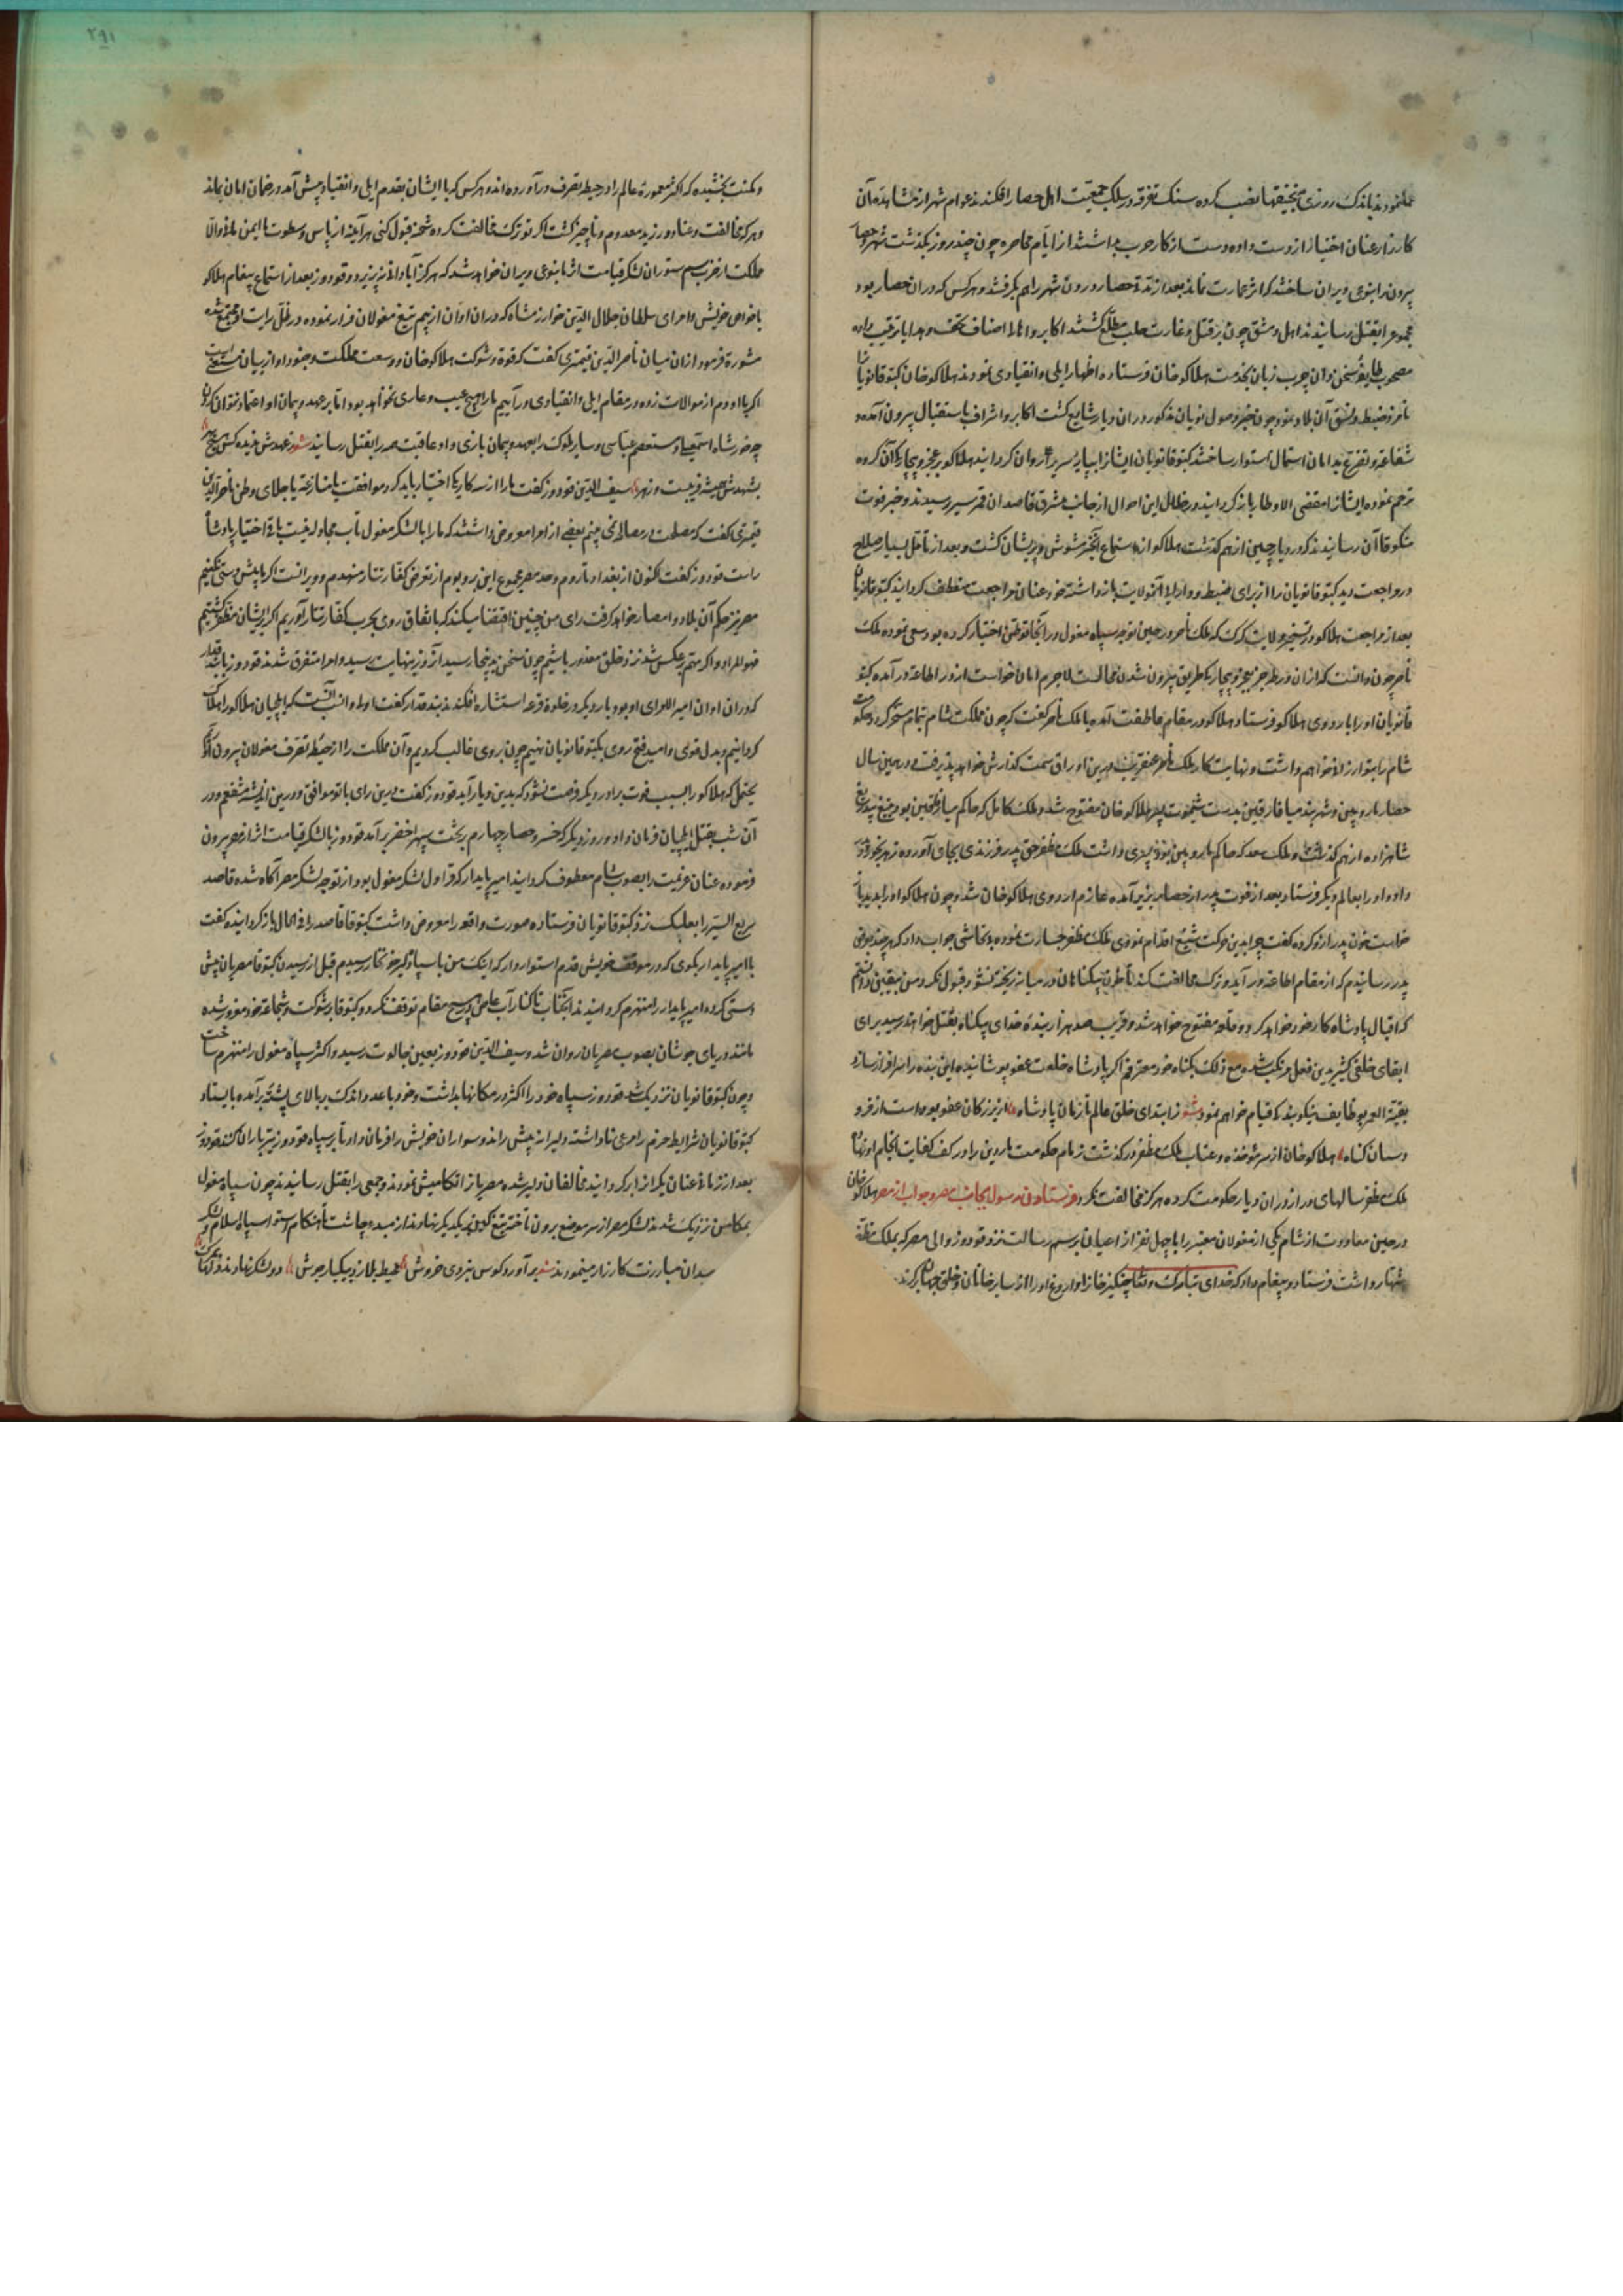 عملنمودند باندک روزی منجنیقها نصب کرده سنک تفرقه در سلک جمعیّت اهل حصار افکندند عوام شهر از مشاهده آن
کارزار عنان اختیار از دست داده دست از کار حرب بداشتند از ایّام محاصره چون چند روز بکذشت شهر و حصار
بیرون را بنوعی ویران ساختند که اثر عمارت نماند بعد از مدّة حصار درون شهر را هم بکرفتند و هر کس که در ان حصار بود
مجموع را بقتل رسانیدند اهل دمشق چون بر قتل و غارت حلب مطلع کشتند اکابر و اهالی اصناف تحف و هدایا ترتیب داده
مصحوب طایفه سخن دان چرب زبان بخدمت هلاکو خان فرستاده اظهار ایلی و انقیادی نمودند هلاکو خان کتبوقا نویانرا
نامزد ضبط و نسق آن بلاد نمود و چون خبر وصول نویان مذکور در ان دیار شایع کشت اکابر و اشراف باستقبال بیرون آمده
شفاعة و تضرّع بدامان استمال استوار ساختند کتبوقا نویان ایشانرا بپایه سریر اعلی روان کردانید هلاکو بر عجز و بیچارکی آن کروه
ترحم نموده ایشانرا مقضی الاوطار باز کردانید و در خلال این احوال از جانب مشرق قاصدان قمر سیر رسیدند و خبر فوت
منکوقاآن رسانیدند که در دیار چین از هم کذشت هلاکو از استماع آنخبر مشوش و پریشان کشت و بعد از تأمّل بسیار صلاح
در مراجعت دید کتبوقا نویان را از برای ضبط و دارایی آنولایت باز داشته خود عنان مراجعت منعطف کردانید کتبوقا نویان
بعد از مراجعت هلاکو در تسخیر ولایت کرک که ملک ناصر در حین توجه سپاه مغول در انجا توطّن اختیار کرده بود سعی نموده ملک
ناصر چون دانست که از ان ورطه جز بعجز و بیچارکی طریق بیرون شدن محالست لاجرم امان خواست از در اطاعة در آمده کتبو
قانویان او را باردوی هلاکو فرستاد هلاکو در مقام عاطفت آمده با ملک ناصر کفت که چون مملکت شام بتمام مسخّر کردد حکومت
شام را بتو ارزانی خواهم داشت و نهایت کار ملک ناصر عنقریب درین اوراق سمت کذارش خواهد پذیرفت و در همین سال
حصار ماردین و شهر بند میافارقین بدست یشموت پسر هلاکو خان مفتوح شد و ملک کامل که حاکم میافارقین بود بتیغ بیدریغ
شاهزاده از هم کذشت و ملک سعد که حاکم ماردین بود پسری داشت ملک مظفر حق پدر فرزندی بجای آورده زهر بخورد پدر
داد و او را بعالم دیکر فرستاد بعد از فوت پدر از حصار بزیر آمده عازم اردوی هلاکو خان شد و چون هلاکو او را بدید باز
خواست خون پدر ازو کرده کفت چرا بدین حرکت شنیع اقدام نمودی ملک مظفر جسارت نموده بی تحاشی جواب داد که هر چند بعرض
پدر رسانیدم که از مقام اطاعة در آید و ترک مخالفت کند تا خون بیکناهان در میانه ریخته نشود قبول نکرد و من بیقین دانستم
که اقبال پادشاه کار خود خواهد کرد و قلعه مفتوح خواهد شد و قریب صد هزار بندهٔ خدای بیکناه بقتل خواهند رسید برای
ابقای خلقی کثیر بدین فعل مرتکب شدم مع ذلک بکناه خود معترفم اکر پادشاه خلعت عفو پوشانیده این بنده را سرافراز سازد
بقیّة العمر بوظایف نیکوبندکی قیام خواهم نمود شعر ز ابتدای خلق عالم تا زمان پادشاه از بزرکان عفو بوده است از فرو
دستان کناه هلاکو خان از سر مؤاخذه و عتاب ملک مظفر در کذشت زمام حکومت ماردین را در کف کفایت انجام او نهاد
ملک مظفر سالهای دراز در ان دیار حکومت کرده هرکز مخالفت نکرد فرستادن رسول بجانب مصر و جواب از مصر هلاکو خان
در حین معاودت از شام یکی از مغولان معتبر را با چهل نفر از اعیان برسم رسالت نزد قودوز والی مصر که بملک مظفّر
اشتهار داشت فرستاد و پیغام داد که خدای تبارک و تعالی چنکیز خانرا و اروغ او را از سایر خانان و خلق جهان برکزید
و مکنت بخشیده که اکثر معمورهٔ عالم را در حیطه تصرف در آورده اند و هر کس که با ایشان بقدم ایلی و انقیاد پیش آمد در ضمان امان بماند
و هر که مخالفت و عناد ورزید معدوم و ناچیز کشت اکر تو ترک مخالفت کرده شحنه قبول کنی هر آینه از باس و سطوت ما ایمن مانی و الا
مملکت از ضرب سم ستوران لشکر قیامت اثر ما بنوعی ویران خواهد شد که هرکز آبادانی نپذیرد و قودوز بعد از استماع پیغام هلاکو
با خواص خویش و امرای سلطان جلال الدّین خوارزمشاه که در ان اوان از بیم تیغ مغولان فرار نموده در ظل رایت او مجتمع شده
مشورة فرمود از ان میان ناصر الدّین قیمری کفت که قوة و شوکت هلاکو خان و وسعت مملکت و جنود او از بیان مستغنیست
اکر با او دم از موالات زده در مقام ایلی و انقیادی در آییم ما را هیچ عیب و عاری نخواهد بود اما بر عهد و پیمان او اعتماد نتوان کرد
چه خورشاه اسمعیلی و مستعصم عبّاسی و سایر ملوک را بعهد و پیمان بازی داد عاقبت همه را بقتل رسانید شعر ز عهدش ندیده کس هیچ بهر
بشهدش همیشه فریبست و زهر سیف الدّین قودوز کفت ما را از سه کار یکی اختیار باید کرد موافقت یا منازعة یا جلای وطن ناصر الدین
قیمری کفت که مصلحت در مصالحه می بینم بعضی از امرا معروض داشتند که ما را با لشکر مغول تاب مجادله نیست باقی اختیار پادشاه
راست قودوز کفت اکنون از بغداد تا روم و حد مصر مجموع این بر و بوم از تعرض کفّار تتار منهدم و ویرانست اکر ما پیش دستی نکنیم
مصر نیز حکم آن بلاد و امصار خواهد کرفت رای من چنین اقتضا میکند که باتفاق روی بحرب کفّار تتار آوریم اکر بر ایشان مظفر کشتیم
فهو المراد و اکر مهم بر عکس شد نزد خلق معذور باشیم چون سخن بدینجا رسید آنروز بنهایت رسید و امرا متفرق شدند قودوز با بندقدار
که در ان اوان امیر الامرای او بود بار دیکر در خلوة قرعه استشاره افکندند بندقدار کفت اولی و انسب آنست که ایلچیان هلاکو را هلاک
کردانیم و بدل قوی و امید فتح روی بکتبوقا نویان نهیم چون بروی غالب کردیم و آن مملکت را از حیطه تصرف مغولان بیرون آوریم
یحتمل که هلاکو را بسبب فوت برادر دیکر فرصت نشود که بدین دیار آید قودوز کفت درین رای با تو موافق و درین اندیشه متفقم و در
آن شب بقتل ایلچیان فرمان داد و روز دیکر که خسرو حصار چهارم بر تخت سپهر اخضر بر آمد قودوز با لشکر قیامت اثر از مصر بیرون
فرموده عنان عزیمت را بصوب شام معطوف کردانید امیر پایدار که قراول لشکر مغول بود از توجه لشکر مصر آکاه شده قاصد
سریع السیر را ببعلبک نزد کتبوقا نویان فرستاده صورت واقعه را معروض داشت کتبوقا قاصد را فی الحال باز کردانیده کفت
با امیر پایدار بکوی که در موقف خویش قدم استوار دار که اینک من با سپاه کیر خونخوار رسیدم قبل از رسیدن کتبوقا مصریان پیش
دستی کرده امیر پایدار را منهزم کردانیدند آنجناب تا کنار آب عاصی در هیچ مقام توقف نکرد و کتبوقا بر شوکت و شجاعة خود مغرور شده
مانند دریای جوشان بصوب مصریان روان شد و سیف الدّین قودوز بعین جالوت رسید و اکثر سپاه مغول را منهزم ساخت
و چون کتبوقا نویان نزدیک شد قودوز سپاه خود را اکثر در مکانها بداشت و خود با عدد اندک ببالای پشته بر آمده بایستاد
کتبوقا نویان شرایط حزم را مرعی ناداشته دلیرانه پیش راند و سواران خویش را فرمان داد تا بر سپاه قودوز تیر باران کنند قودوز
بعد از زمانی عنان یکران از کر دانید مخالفان دلیر شده مصریانرا تکامیشی نمودند و جمعی را بقتل رسانیدند چون سپاه مغول
بمکامن نزدیک شدند لشکر مصر از سه موضع برون تاخته تیغ کین در یکدیکر نهادند از مبدء چاشت تا هنکام ستوا سپاه اسلام و لشکر
میدان مبارزت کارزار مینمودند شعر بر آورد کوس نبردی خروش محیط بلا زد بیکبار جوش دو لشکر نهادند
۲۹۱